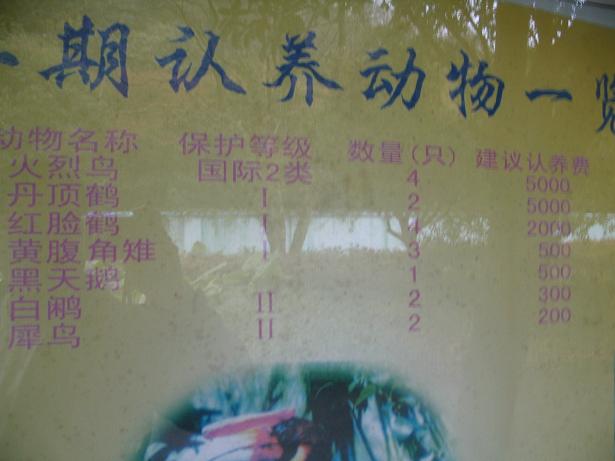 期认养动物一览
动物名称 保护等级 数量(只) 建议认养费
火烈鸟 国际2类 4 5000
丹顶鹤 I 2 5000
红脸鹤 I 4 2000
黄腹角雉 I 3 500
黑天鹅 1 500
白鹇 II 2 300
犀鸟 II 2 200